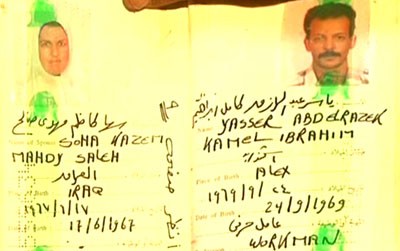 سها كاظم مهدي صالح
SOHA KAZEM
MAHDY SALEH
العراق
IRAQ
17/6/1967
ياسر عبد الرازق كامل ابراهيم
YASSER ABDELRAZEK
KAMEL IBRAHIM
ALEX
Date of Birth
١٩٦٩/٩/٢٤
24/9/1969
عامل حرفى
WORKMAN